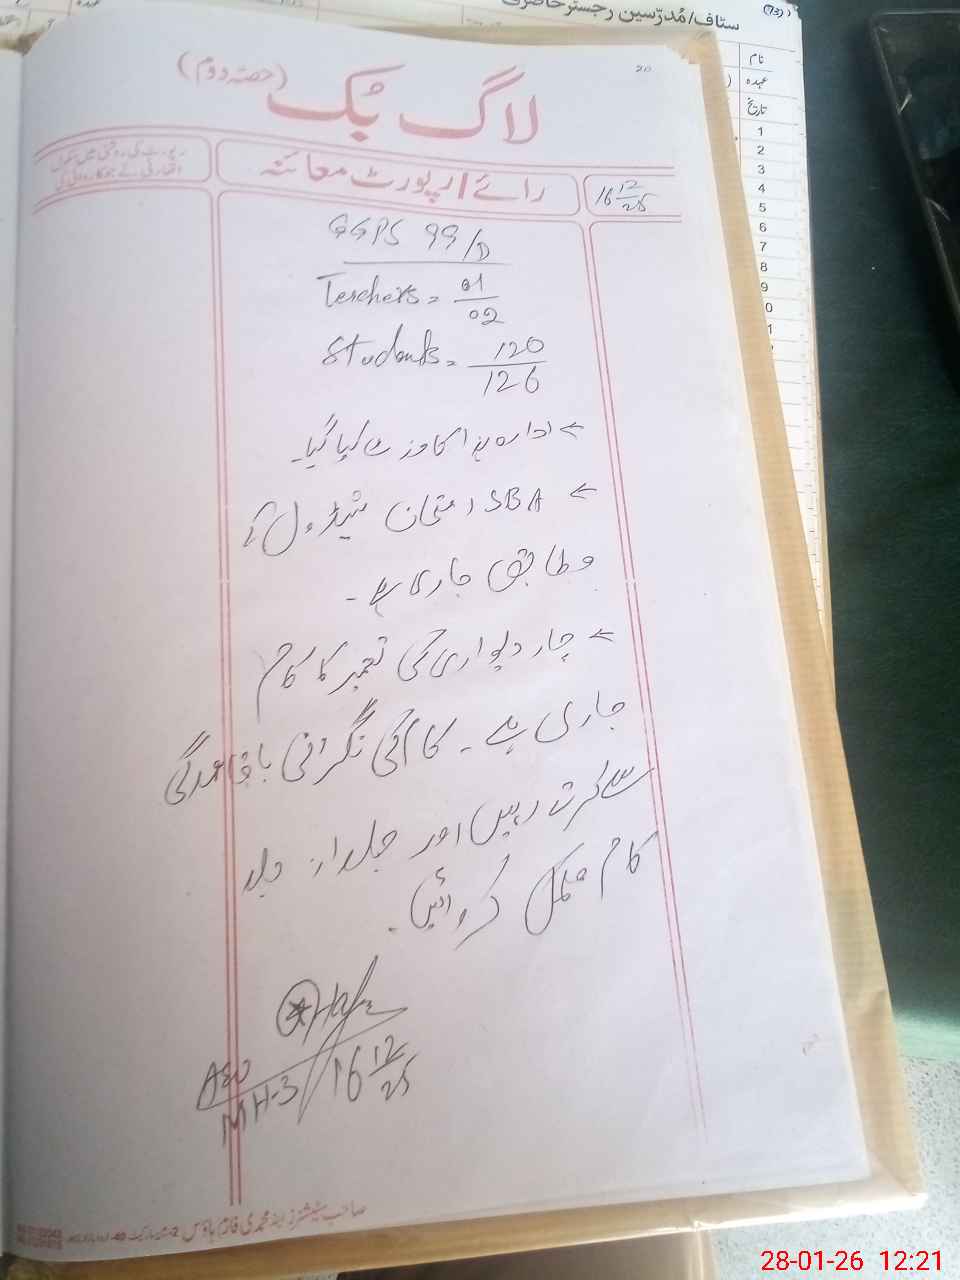 سٹاف/مُدرّسین رجسٹر حاضری
(73)
نام
عہدہ
تاریخ
1
2
3
4
5
6
7
8
9
20
لاگ بُک (حصّہ دوم)
رپورٹ کی روشنی میں
رائے/رپورٹ معائنہ
16 12/25
GGPS 99/D
Teachers = 01/02
Students = 120/126
← ادارہ ہذا کا وزٹ کیا گیا۔
← SBA امتحان شیڈول کے
مطابق جاری ہے۔
← چار دیواری کی تعمیر کا کام
جاری ہے۔ کام کی نگرانی باقاعدگی
سے کرتے رہیں اور جلد از جلد
کام مکمل کروائیں۔
AEO
MH-3 / 16 12/25
صاحب سٹیشنرز اینڈ محمدی فارم ہاؤس
28-01-26 12:21